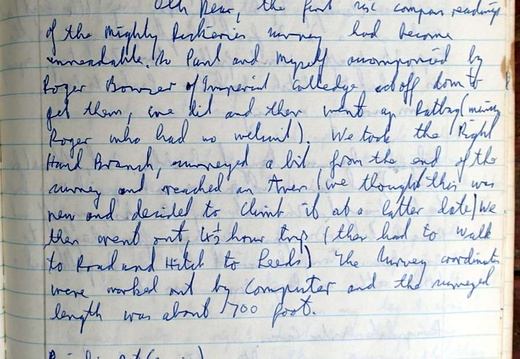 Oh Dear, the first six compass readings
of the Mighty Pasteries survey had become
unreadable. So Paul and Myself accompanied by
Roger Bowser of Imperial Colledge, set off down to
get them, we did and then went up Rattray (minus
Roger who had no wetsuit). We took the Right
Hand Branch, surveyed a bit from the end of the
survey and reached an Aven (we thought this was
new and decided to Climb it at a latter date) We
then went out, 4½ hour trip (then had to walk
to Road and Hitch to Leeds). The Survey coordinates
were worked out by Computer and the surveyed
length was about 1700 foot.